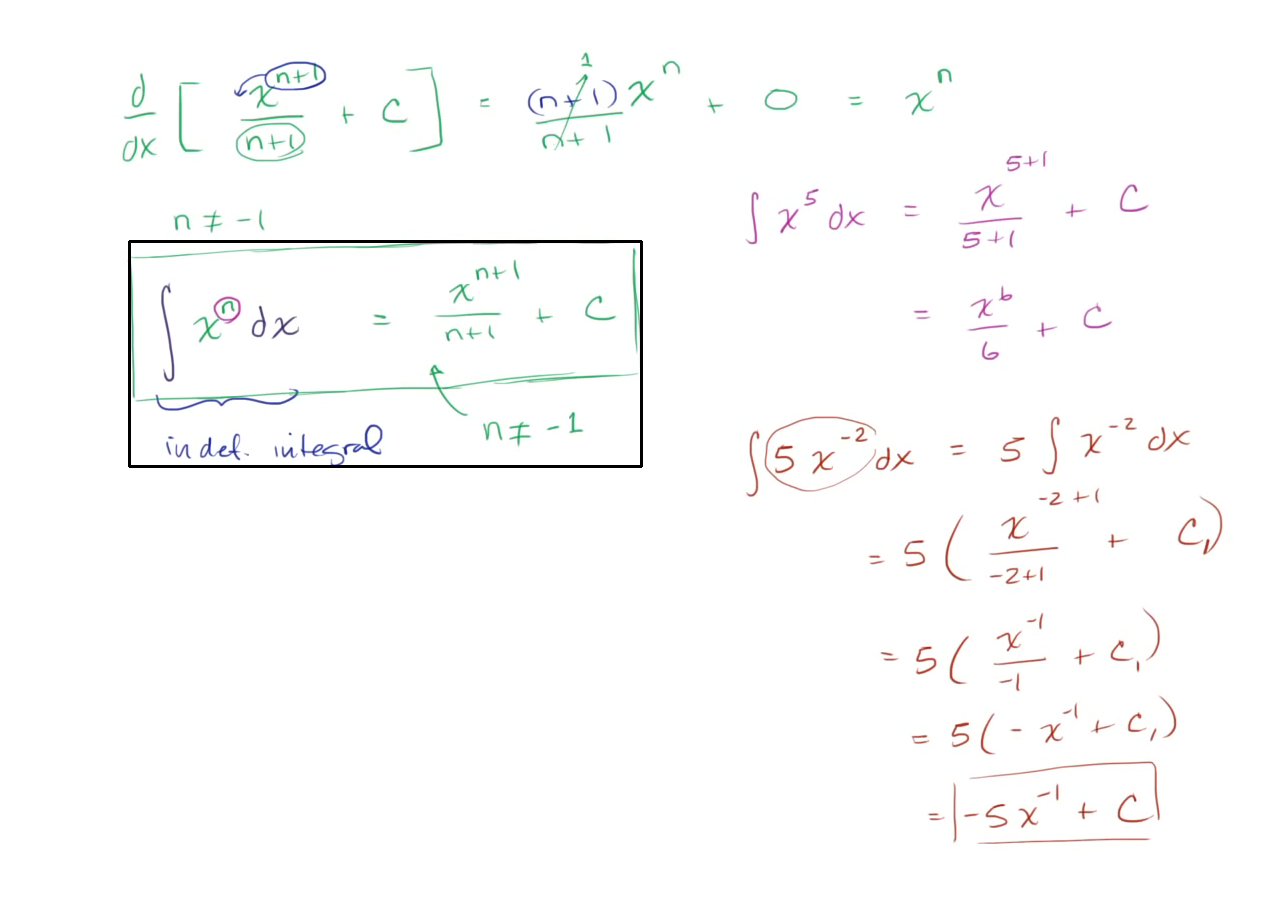 d/dx [ x^(n+1)/(n+1) + C ] = (n+1)x^n/(n+1) 1 + 0 = x^n
n ≠ -1
∫ x^n dx = x^(n+1)/(n+1) + C
n ≠ -1
indef. integral
∫ x^5 dx = x^(5+1)/(5+1) + C
= x^6/6 + C
∫ 5x^(-2) dx = 5 ∫ x^(-2) dx
= 5 ( x^(-2+1)/(-2+1) + C₁)
= 5 ( x^(-1)/(-1) + C₁)
= 5 ( - x^(-1) + C₁)
= -5x^(-1) + C